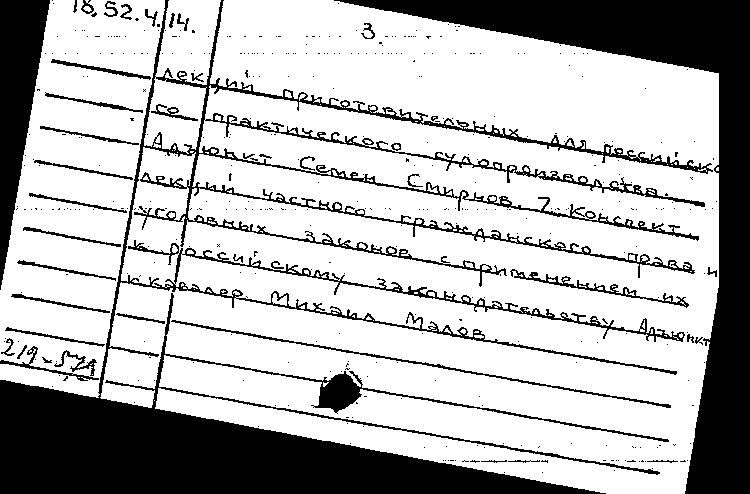 18,52.4.14.
3.
лекций приготовительных для российско
го практического судопроизводства.
Адъюнкт Семен Смирнов. 7. Конспект
лекций частного гражданского права и
уголовных законов с применением их
к российскому законодательству. Адъюнкт
к кавалер Михаил Малов.
219-57А